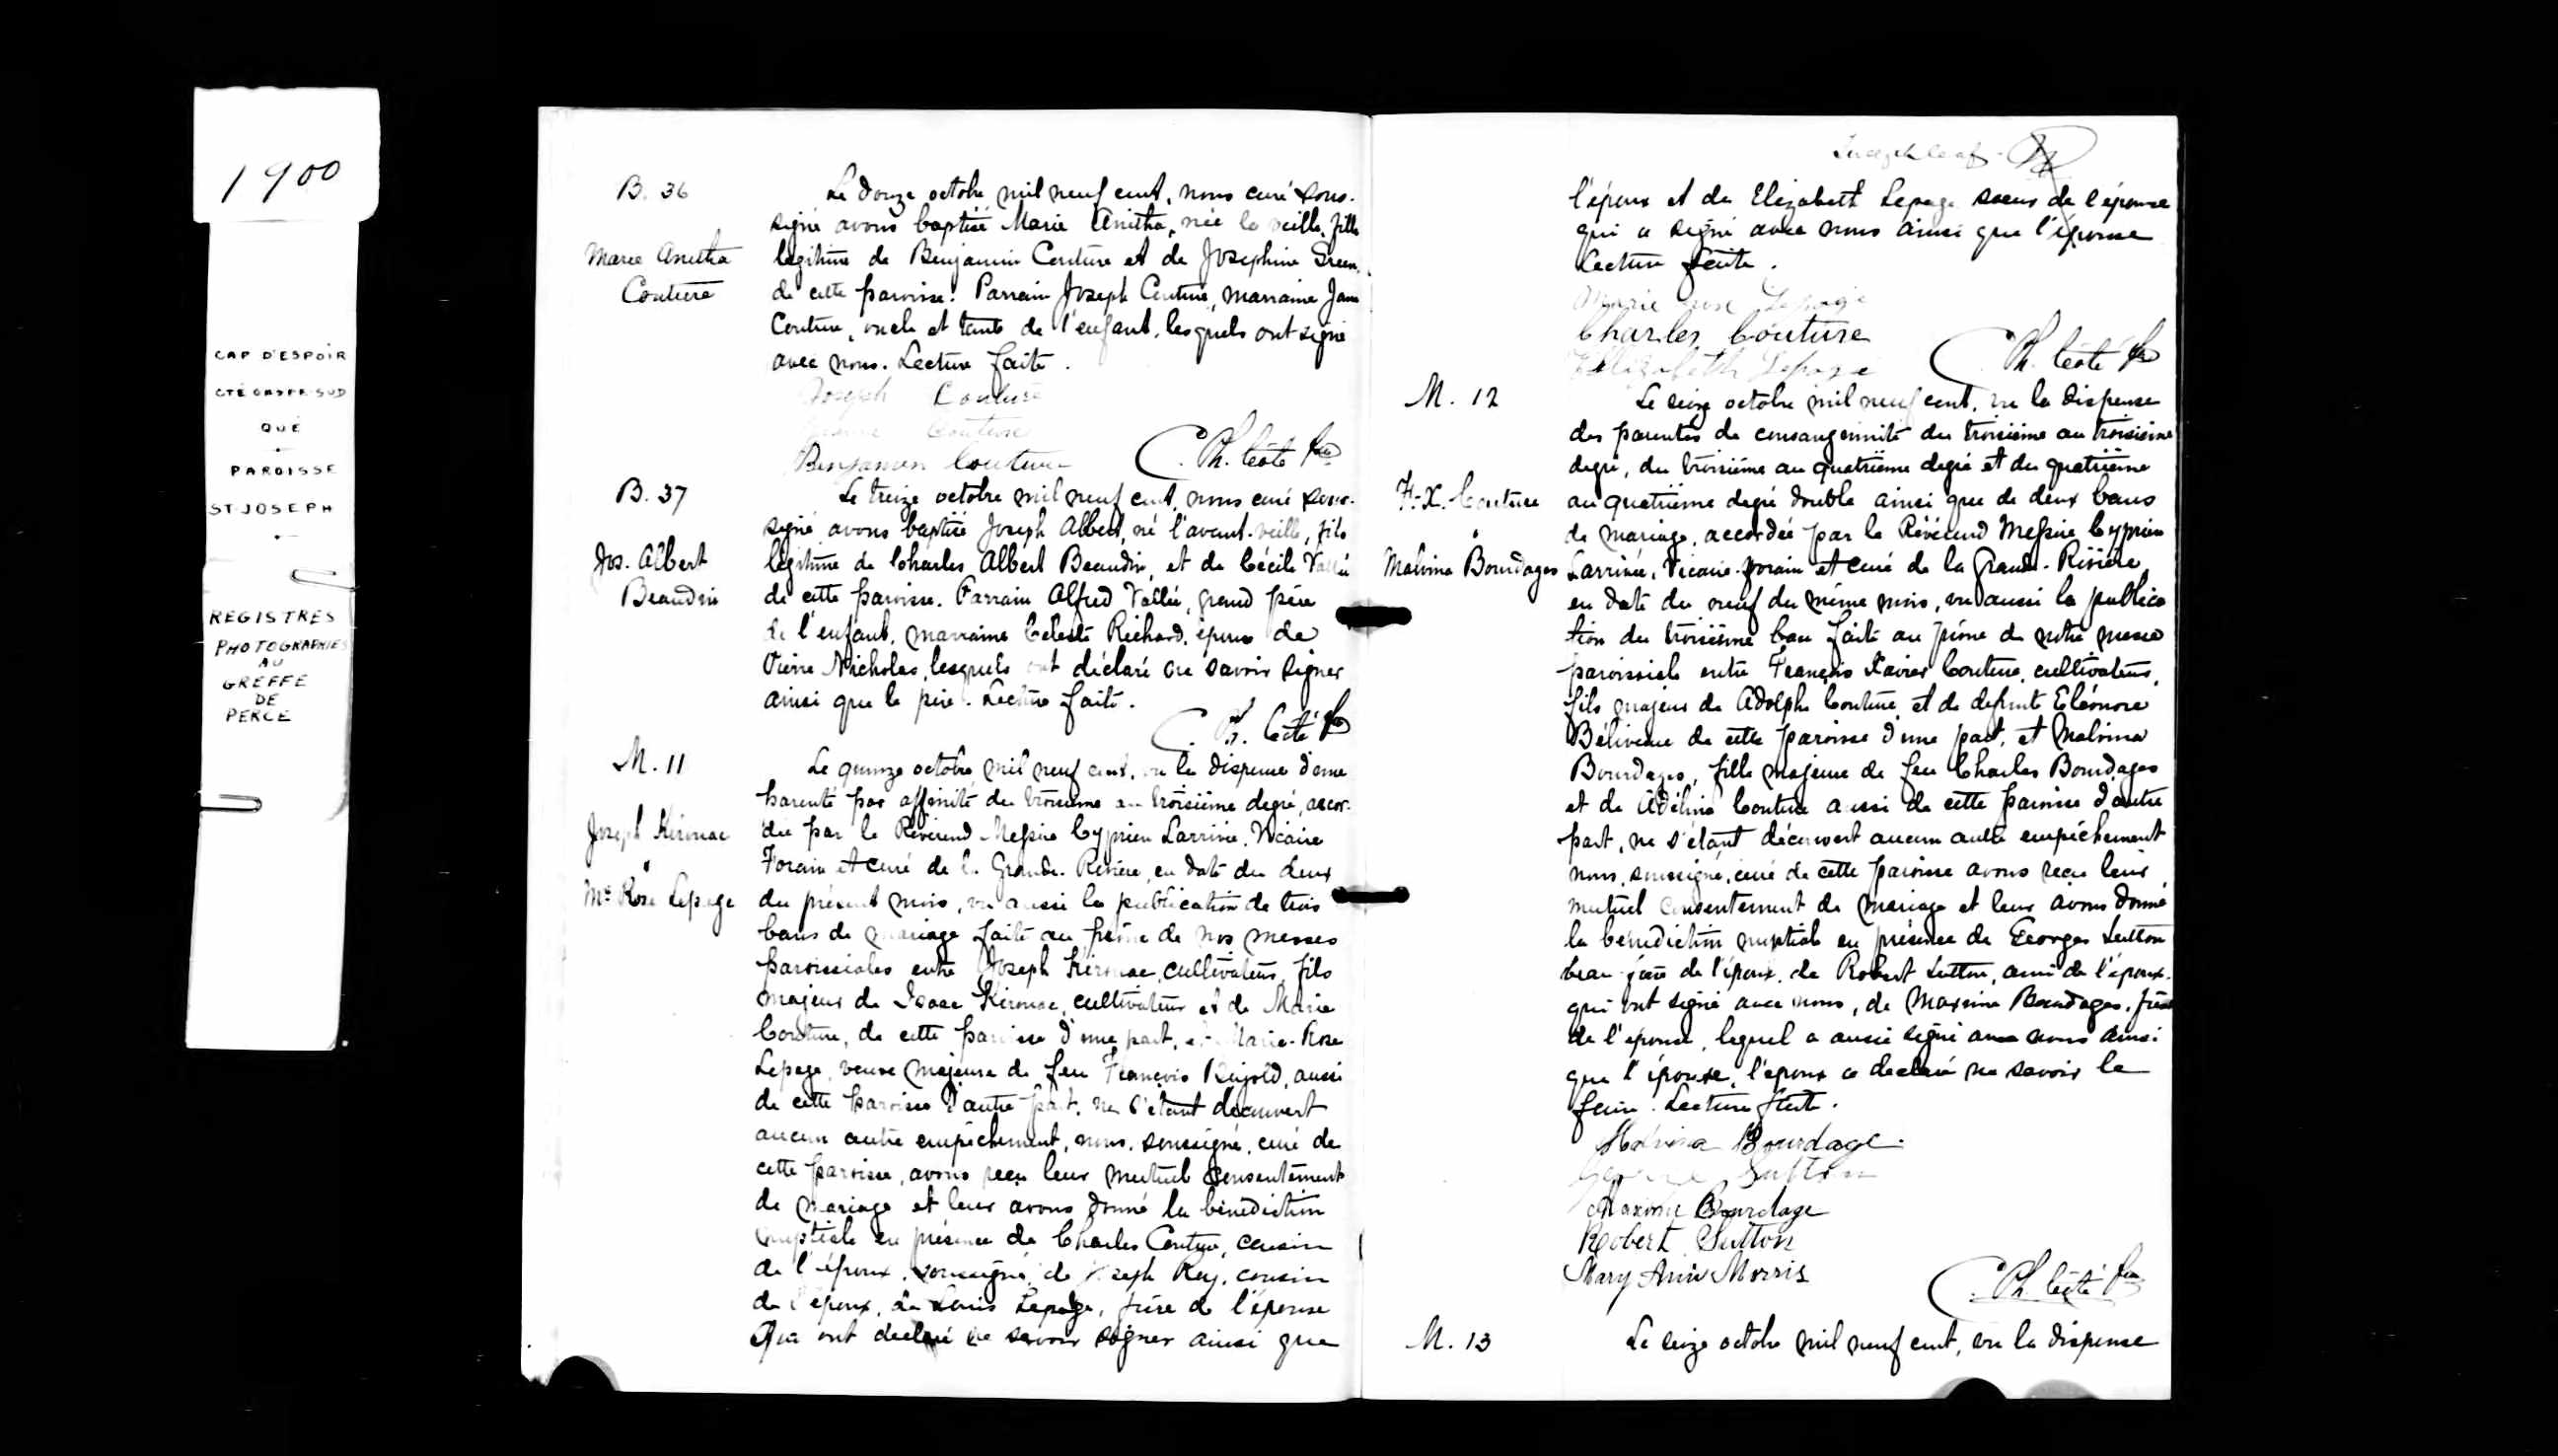 1900
CAP D'ESPOIR
CTÉ GASPE SUD
QUÉ
PAROISSE
ST JOSEPH
REGISTRES
PHOTOGRAPHIES
AU
GREFFE
DE
PERCE
B. 36
Marie Anitha
Couture
Le douze octobre mil neuf cent, nous curé sous-
signé avons baptisé Marie Anitha, née la veille, fille
légitime de Benjamin Couture et de Josephine Green,
de cette paroisse. Parrain Joseph Couture, marraine Jane
Couture, oncle et tante de l'enfant, lesquels ont signé
avec nous. Lecture faite.
Joseph Couture
Couture
Benjamin Couture
B. 37
Jos. Albert
Beaudin
Le treize octobre mil neuf cent, nous curé sous-
signé avons baptisé Joseph Albert, né l'avant-veille, fils
légitime de Charles Albert Beaudin, et de Cécile Vallée
de cette paroisse. Parrain Alfred Vallée, grand père
de l'enfant, marraine Celeste Richard, épouse de
Pierre Nicholas, lesquels ont déclaré ne savoir signer
ainsi que le père. Lecture faite.
M. 11
Joseph Kirouac
&
Me Rose Lepage
Le quinze octobre mil neuf cent, vu la dispense d'une
parenté par affinité du troisième au troisième degré, accor-
dée par le Révérend Messire Cyprien Larrivée, Vicaire
Forain et curé de la Grande-Rivière, en date du deux
du présent mois, vu aussi la publication de trois
bans de mariage faite au prône de nos messes
paroissiales entre Joseph Kirouac, cultivateur, fils
majeur de Isaac Kirouac, cultivateur et de Marie
Couture, de cette paroisse d'une part, et Marie-Rose
Lepage, veuve majeure de feu François, aussi
de cette paroisse d'autre part, ne s'étant découvert
aucun autre empêchement, nous, soussigné, curé de
cette paroisse, avons reçu leur mutuel consentement
de mariage et leur avons donné la bénédiction
nuptiale en présence de Charles Couture, cousin
de l'époux, soussigné, de Joseph Rey, cousin
de l'époux, de Louis Lepage, frère de l'épouse
qui ont déclaré ne savoir signer ainsi que
l'époux et de Elizabeth Lepage soeur de l'épouse
qui a signé avec nous ainsi que l'épouse
Lecture faite.
Marie rose Lepage
Charles Couture
Elizabeth Lepage
M. 12
F.-X. Couture
&
Malvina Bourdages
Le seize octobre mil neuf cent, vu la dispense
des parentés de consanguinité du troisième au troisième
degré, du troisième au quatrième degré et du quatrième
au quatrième degré double ainsi que de deux bans
de mariage, accordée par le Révérend Messire Cyprien
Larrivée, Vicaire-forain et curé de la Grande-Rivière,
en date du neuf du même mois, vu aussi la publica
tion du troisième ban faite au prône de notre messe
paroissiale entre François Xavier Couture, cultivateur,
fils majeur de Adolphe Couture et de defunte Eléonore
Béliveau de cette paroisse d'une part, et Malvina
Bourdages, fille majeure de feu Charles Bourdages
et de Adéline Couture aussi de cette paroisse d'autre
part, ne s'étant découvert aucun autre empêchement
nous, soussigné, curé de cette paroisse avons reçu leur
mutuel consentement de mariage et leur avons donné
la bénédiction nuptiale en présence de Georges Sutton
beau-frère de l'époux, de Robert Sutton, ami de l'époux,
qui ont signé avec nous, de Maxime Bourdages, frère
de l'épouse, lequel a aussi signé avec nous ainsi
que l'épouse, l'époux a déclaré ne savoir le
faire. Lecture faite.
Malvina Bourdage
Sutton
Maxime Bourdage
Robert Sutton
Mary Ann Morris
M. 13
Le seize octobre mil neuf cent, vu la dispense